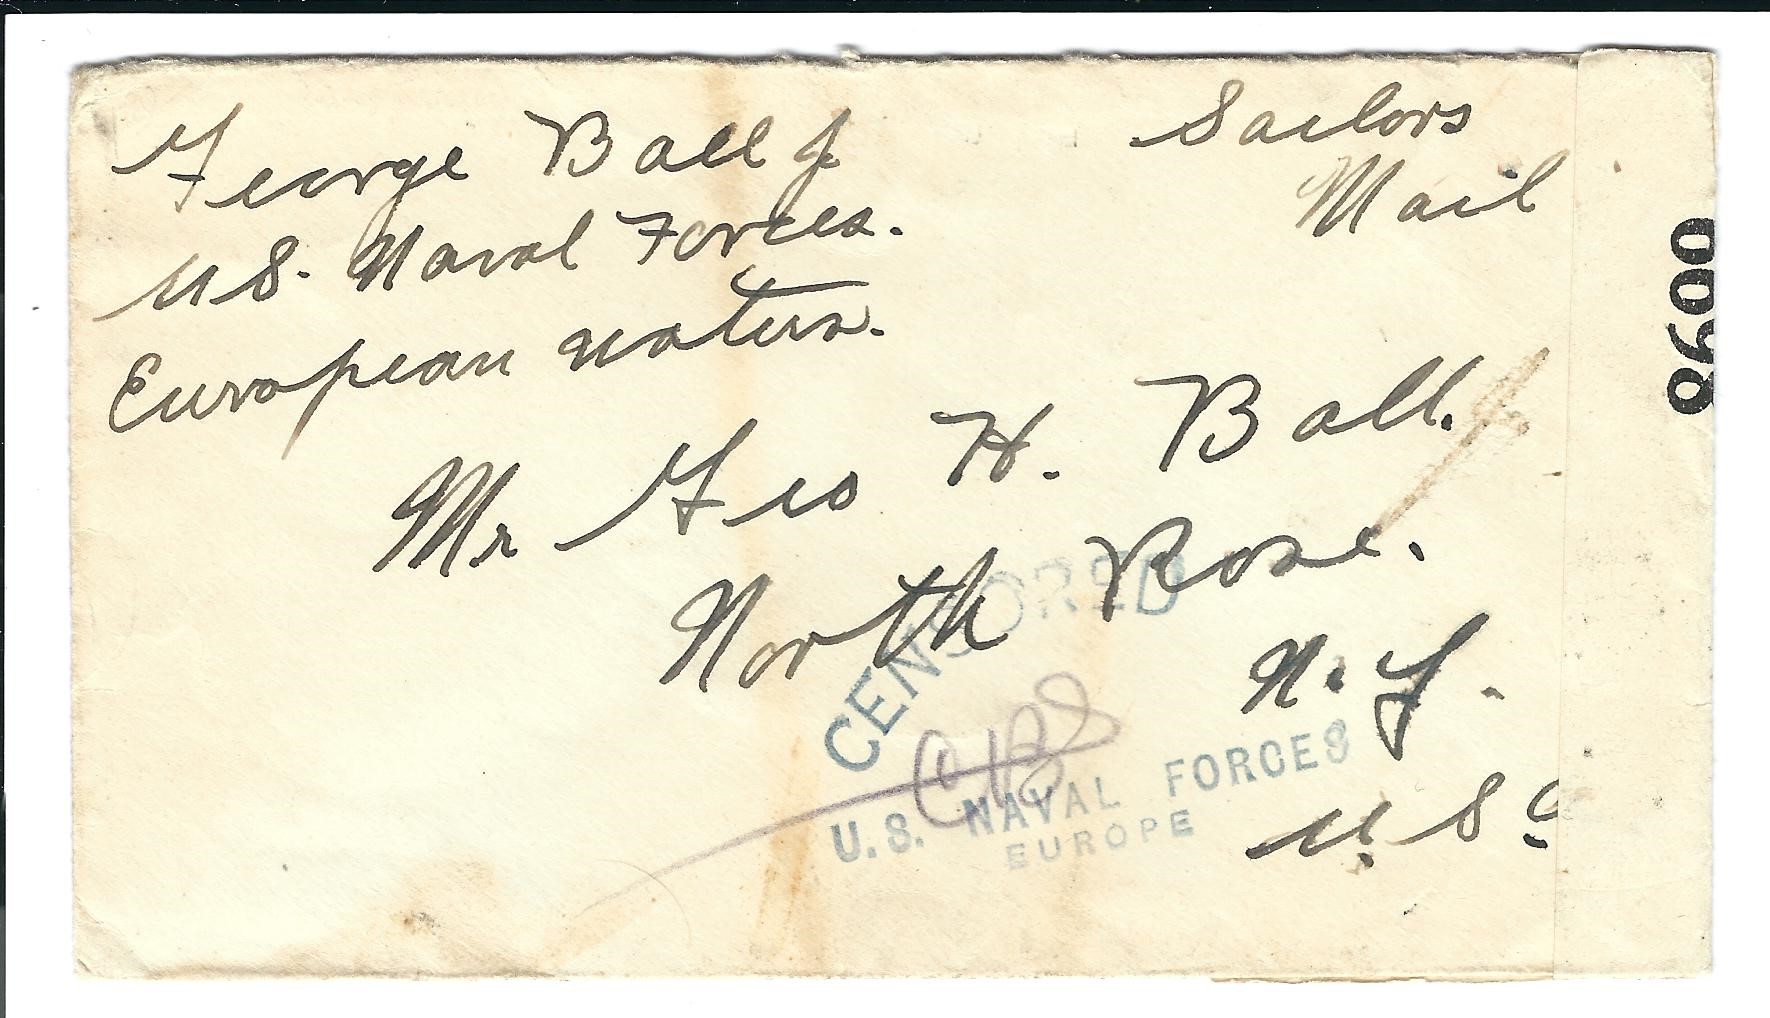 George Ball Jr
U.S. Naval Forces.
European waters.
Sailors
Mail
Mr Geo H. Ball.
North Rose.
N.Y.
U.S.
CENSORED
CBS
U.S. NAVAL FORCES
EUROPE
8600